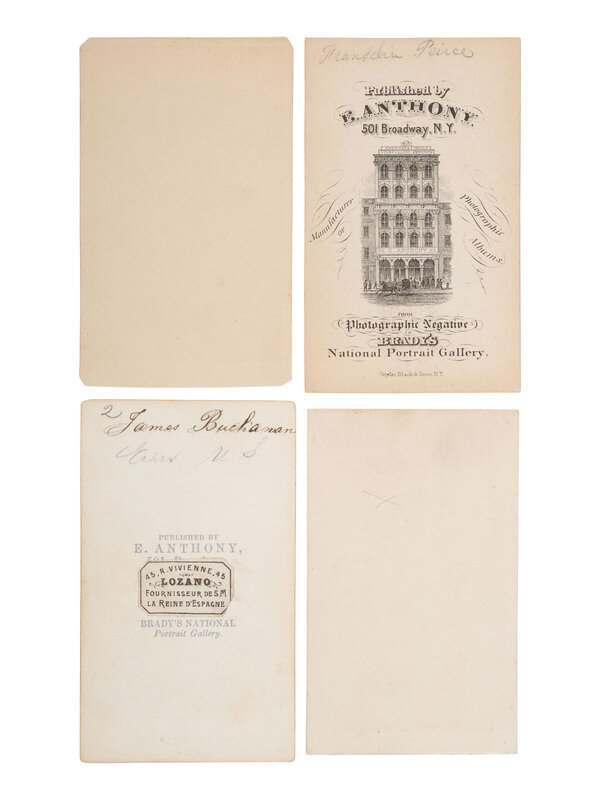 Franklin Peirce
Published by
E. ANTHONY.
501 Broadway, N.Y.
Manufacturer
OF
Photographic
Albums.
E. ANTHONY
FROM
Photographic Negative
IN
BRADY'S
National Portrait Gallery.
Snyder, Black & Sturn, N.Y.
2
James Buchanan
U S
PUBLISHED BY
E. ANTHONY,
501
45, R. VIVIENNE, 45
LOZANO
FOURNISSEUR DE S.M
LA REINE D'ESPAGNE
BRADY'S NATIONAL
Portrait Gallery.